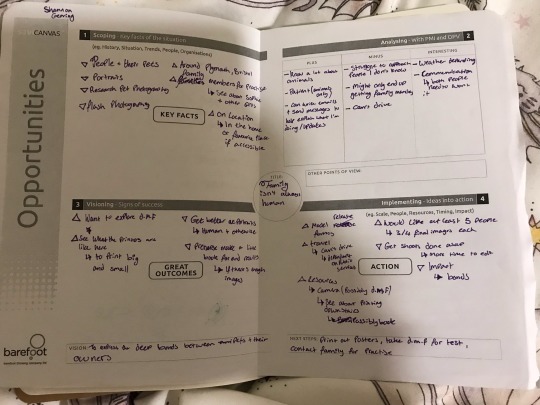 Shannon
CANVAS
Opportunities
1 Scoping - Key facts of the situation
(eg. History, Situation, Trends, People, Organisations)
▽ People + their pets
▽ Portraits
▽ Research Pet Photography
▽ Flash Photography
△ travel Plymouth, Bristol
family
members for practice
↳ See about
+ other
△ On Location
↳ In the home
or favourite place
if accessible
KEY FACTS
Analysing - with PMI and OPV 2
PLUS
- Know a lot about
animals
- Patient (animals
only)
- Can write emails
+ send messages to
help explain what I'm
doing/updates
MINUS
- Struggle to approach
people I don't know
- Might only end up
getting family members
- Can't drive
INTERESTING
- Weather depending
- Communication
↳ both people
need to want
it
OTHER POINTS OF VIEW:
TITLE:
Family
isn't always
human
3 Visioning - Signs of success
△ Want to explore d.m.f
△ See what the prints are
like here
↳ to print big
and small
▽ Get better at portraits
↳ Human + otherwise
▽ make a
book for end results
↳ of images
GREAT
OUTCOMES
VISION: To explore the deep bonds between pets + their
owners
Implementing - Ideas into action 4
(eg. Scale, People, Resources, Timing, Impact)
△ Model release
forms
△ travel
↳ Can't drive
△ Resources
↳ Camera (Possibly d.m.f)
↳ See about Printing
↳ Possibly book
△ Would like at least 5 people
↳ 3/4 final images each
▽ Get shoots done asap
↳ more time to edit
▽ Impact
↳ bonds
ACTION
NEXT STEPS: Print out Posters, take d.m.f for test,
contact family for Practise
barefoot